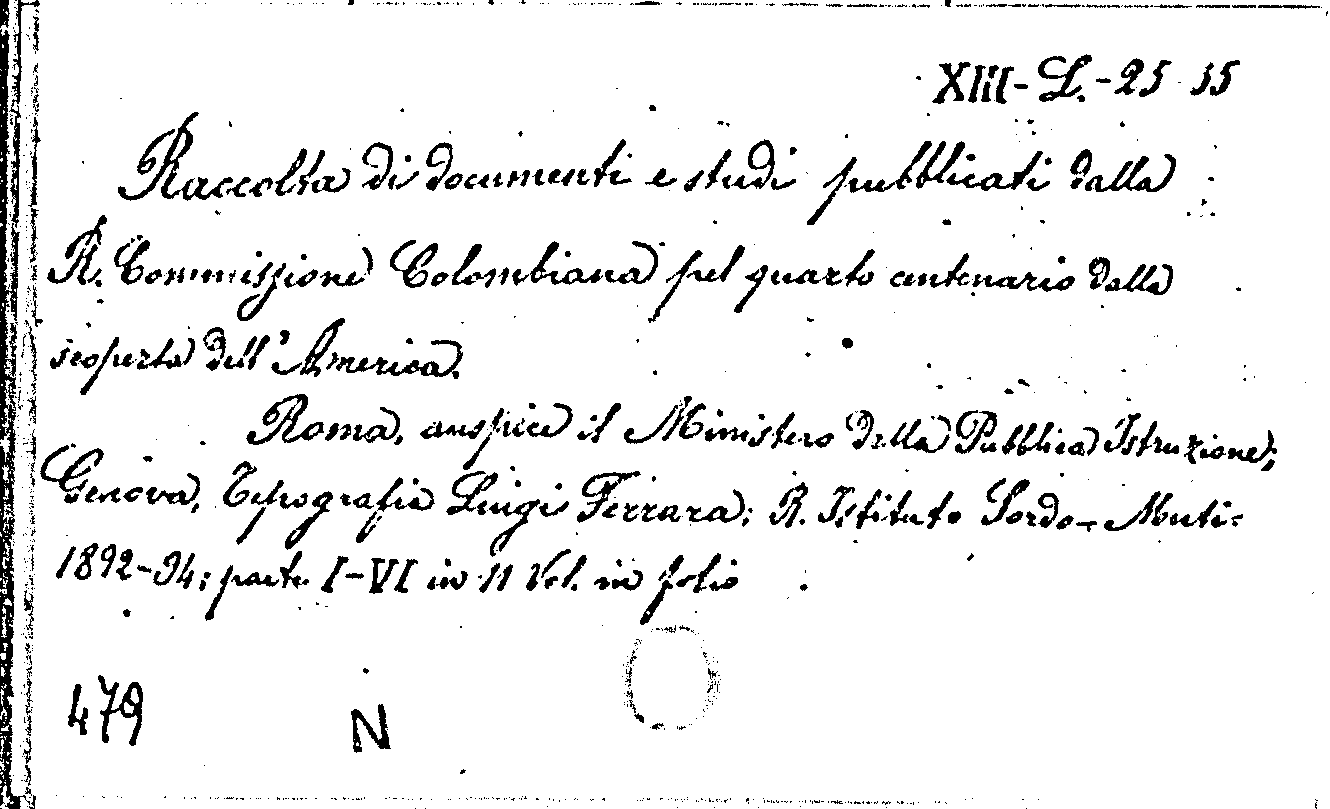 XIII-L.-25 35
Raccolta di documenti e studi pubblicati dalla
R. Commissione Colombiana pel quarto centenario dalla
scoperta dell'America.
Roma, auspice il Ministero della Pubblica Istruzione;
Genova, Tipografia Luigi Ferrara; R. Istituto Sordo-Muti-
1892-94; parte I-VI in 11 Vol. in folio
479
N